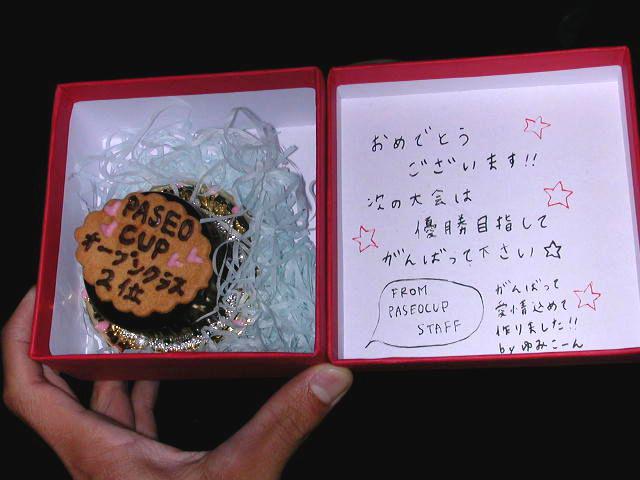 PASEO
CUP
オープンクラス
2位
おめでとう
ございます!!
次の大会は
優勝目指して
がんばって下さい☆
FROM
PASEOCUP
STAFF
がんばって
愛情込めて
作りました!!
by ゆみこーん